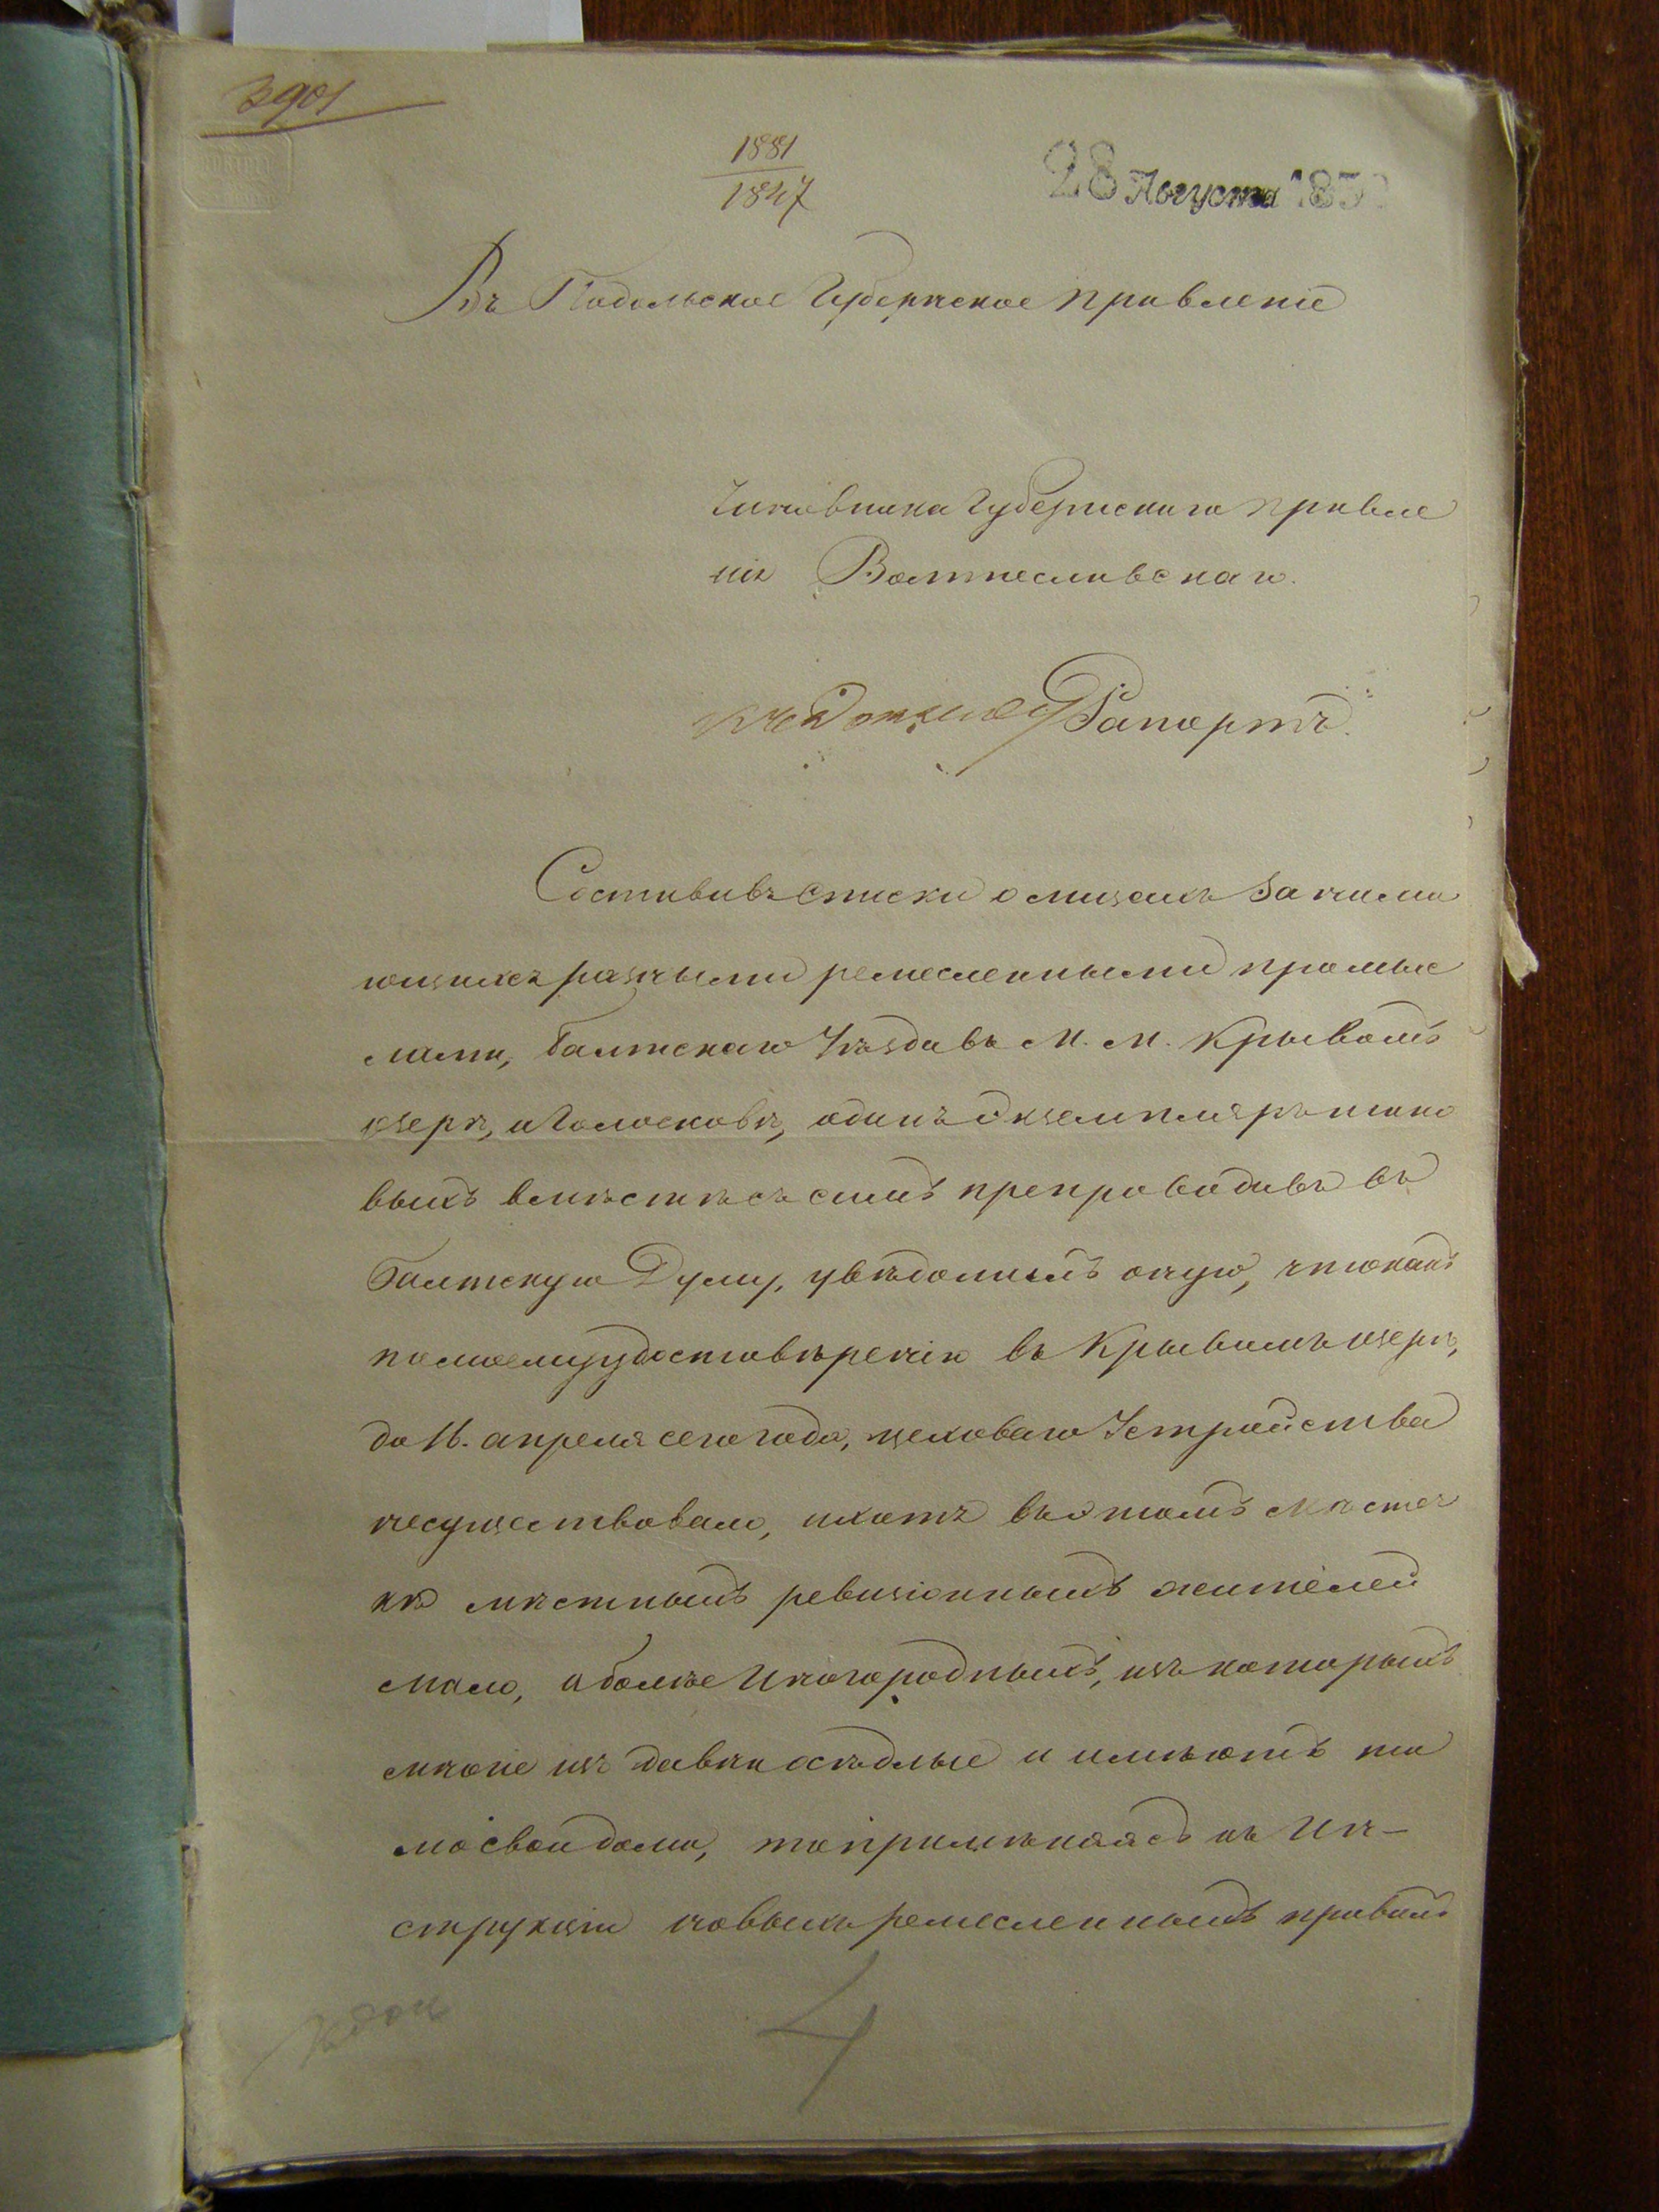 3901
1881
1847
28 Августа 185
Въ Подольское Губернское Правленіе
Чиновника Губернскаго Правле
нія
Рапортъ.
Составивъ списки о лицахъ занима
ющихся разными ремесленными промыс
лами, Балтскаго Уѣзда въ М. М. Крывомъ
озерѣ, и Голосковѣ, одинъ экземпляръ тако
выхъ вмѣстѣ съ симъ препроводивъ въ
Балтскую Думу, увѣдомилъ оную, что какъ
по моему удостовѣренію въ Крывомъ озерѣ,
до 16. апреля сего года, цеховаго Устройства
несуществовало, и хотя въ этомъ мѣстеч
кѣ мѣстныхъ ревизіонныхъ жителей
мало, а болѣе Иногородныхъ, изъ которыхъ
многіе изъ давна осѣдлые и имѣютъ та
мо свои домы, то примѣняясь къ Ин-
струкціи новыхъ ремесленныхъ правилъ
4